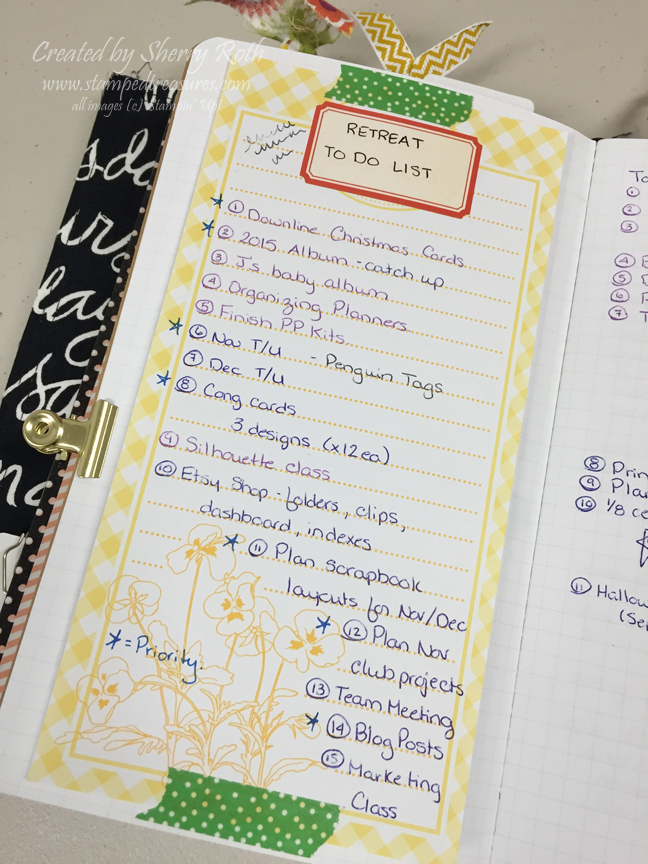 Created by Sherry Roth
www.stampedtreasures.com
all images (c) Stampin' Up!
RETREAT
TO DO LIST
* ① Downline Christmas Cards
* ② 2015 Album - catch up
③ J's baby album
④ Organizing Planners
⑤ Finish PP Kits
* ⑥ Nov T/U - Penguin Tags
⑦ Dec T/U
* ⑧ Cong cards
3 designs (x12ea)
⑨ Silhouette class
⑩ Etsy Shop - folders, clips,
dashboard, indexes
* ⑪ Plan scrapbook
layouts for Nov/Dec
* ⑫ Plan Nov
club projects
* = Priority.
⑬ Team Meeting
* ⑭ Blog Posts
⑮ Marketing
Class
To
①
②
③
④
⑤
⑥
⑦
⑧ Prin
⑨ Plan
⑩ 1/8 ce
⑪ Hallow